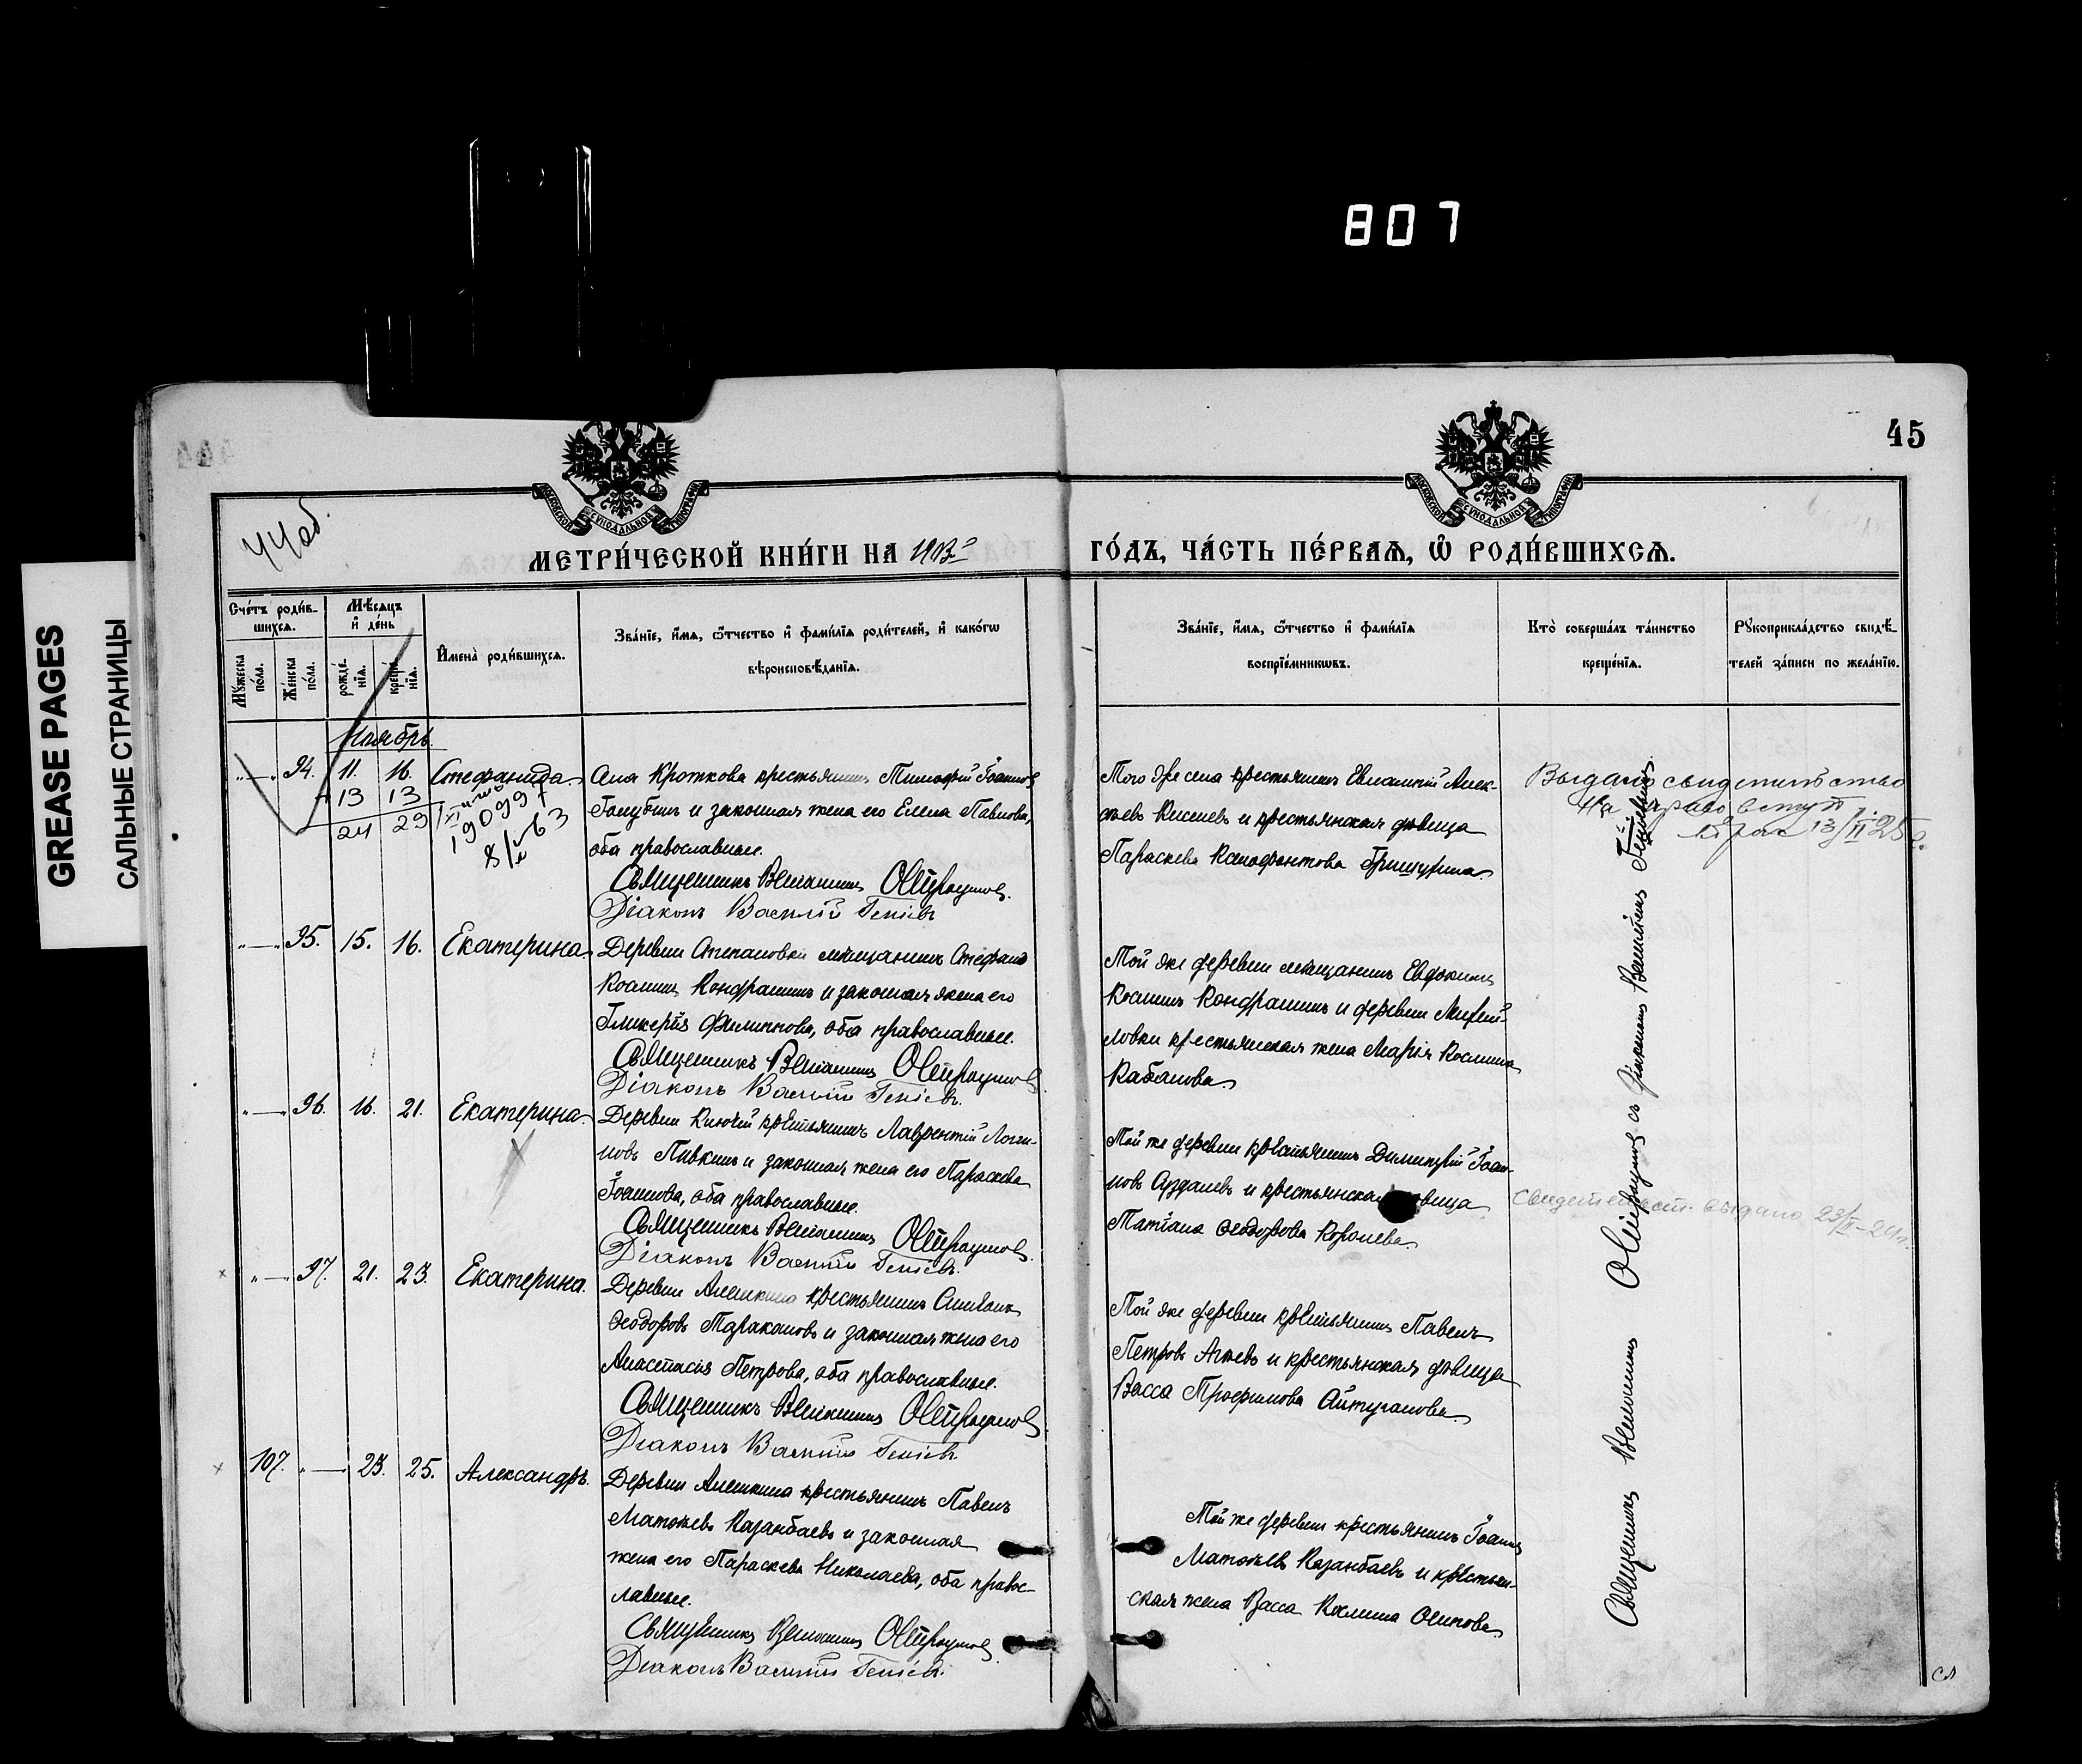 807
GREASE PAGES
САЛЬНЫЕ СТРАНИЦЫ
45
44об.
МОСКОВСКОЙ СѴНОДАЛЬНОЙ ТИПОГРАФІИ
МОСКОВСКОЙ СѴНОДАЛЬНОЙ ТИПОГРАФІИ
МЕТРИ́ЧЕСКОЙ КНИ́ГИ НА 1903 ГО́ДЪ, ЧА́СТЬ ПЕ́РВАѦ, Ѽ РОДИ́ВШИХСѦ.
Сче́тъ роди́вшихсѧ.
Мꙋ́жеска по́ла.
Же́нска по́ла.
Мѣ́сѧцъ и҆ де́нь
рожде́нїѧ.
креще́нїѧ.
И҆мена̀ роди́вшихсѧ.
Зва́нїе, и҆́мѧ, ѻ҆́тчество и҆ фами́лїѧ роди́телей, и҆ како́гѡ
вѣроисповѣ́данїѧ.
Зва́нїе, и҆́мѧ, ѻ҆́тчество и҆ фами́лїѧ
воспрїе́мникѡвъ.
Кто̀ соверша́лъ та́инство
креще́нїѧ.
Рꙋкоприкла́дство свидѣ́
телей за́писи по жела́нїю.
Ноябрь
"—" 94. 11. 16. Стефанида.
13 13
24 29
Села Кроткова крестьянинъ Тимофей Іоанновъ
Голубинъ и законная жена его Елена Павлова,
оба православные.
Священникъ Веніаминъ Остроумовъ.
Діаконъ Василій Геніевъ
Того же села крестьянинъ Евлампій Алек-
сѣевъ Киселевъ и крестьянская дѣвица
Параскева Ксенофонтова Гришурина.
Выдано свидетельство
на право вступ
в брак 13/II 25 г.
"—" 95. 15. 16. Екатерина.
Деревни Степановки мѣщанинъ Стефанъ
Козминъ Кондрашинъ и законная жена его
Гликерія Филиппова, оба православные.
Священникъ Веніаминъ Остроумовъ.
Діаконъ Василій Геніевъ.
Той же деревни мѣщанинъ Евдокимъ
Козминъ Кондрашинъ и деревни Михай-
ловки крестьянская жена Марія Козмина
Кабанова.
"—" 96. 16. 21. Екатерина.
Деревни Ключей крестьянинъ Лаврентій Логги-
новъ Пивкинъ и законная жена его Параскева
Іоаннова, оба православные.
Священникъ Веніаминъ Остроумовъ.
Діаконъ Василій Геніевъ.
Той же деревни крестьянинъ Димитрій Іоан-
новъ Ардалевъ и крестьянская вица
Татіана Ѳеодорова Королева.
свидетельст. выдано 23/II-24 г.
"—" 97. 21. 23. Екатерина.
Деревни Алешкина крестьянинъ Симеонъ
Ѳеодоровъ Таракановъ и законная жена его
Анастасія Петрова, оба православные.
Священникъ Веніаминъ Остроумовъ.
Діаконъ Василій Геніевъ
Той же деревни крестьянинъ Павелъ
Петровъ Агѣевъ и крестьянская дѣвица
Васса Трофимова Айтуганова.
107. "—" 23. 25. Александръ.
Деревни Алешкина крестьянинъ Павелъ
Матѳіевъ Казанбаевъ и законная
жена его Параскева Николаева, оба право-
славные.
Священникъ Веніаминъ Остроумовъ.
Діаконъ Василій Геніевъ.
Той же деревни крестьянинъ Іоаннъ
Матѳіевъ Казанбаевъ и крестьян-
ская жена Васса Козмина Осипова.
Священникъ Веніаминъ Остроумовъ съ діакономъ Василіемъ Геніевымъ